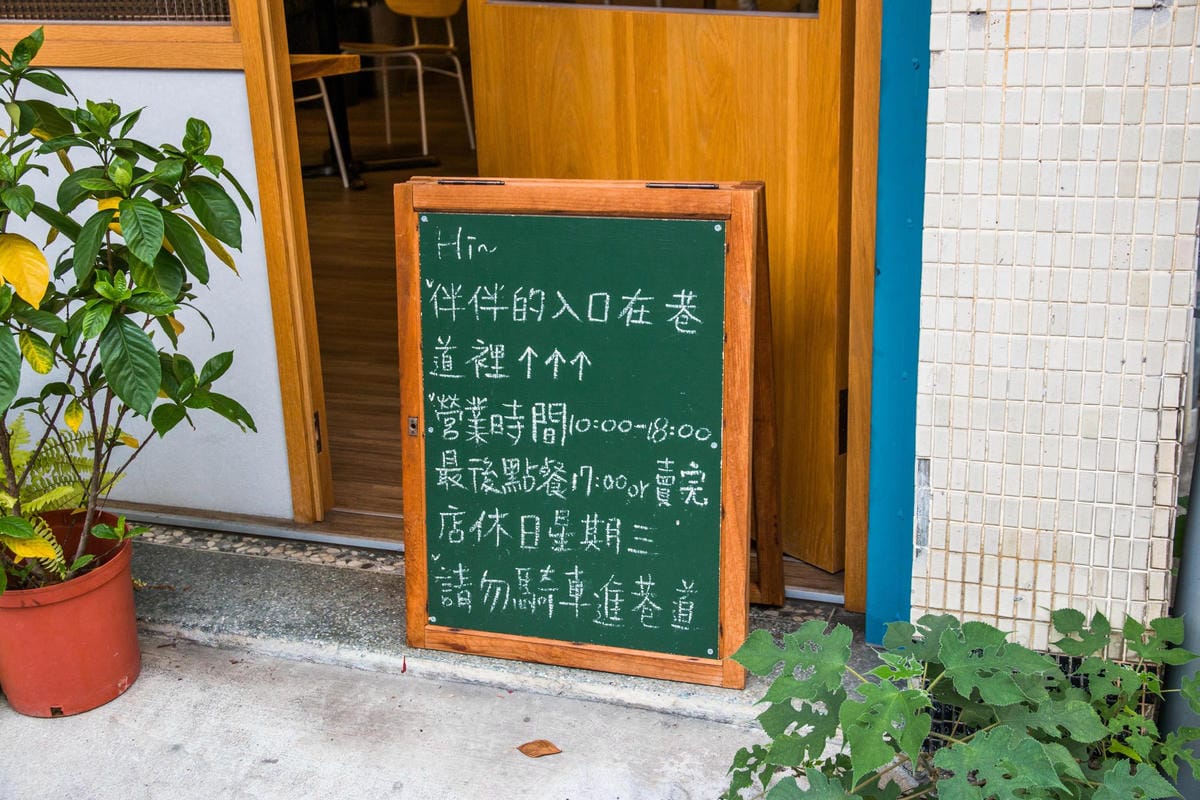 Hi~
ˇ伴伴的入口在巷
道裡↑↑↑
ˇ營業時間10:00-18:00
最後點餐17:00or賣完
店休日星期三
ˇ請勿騎車進巷道